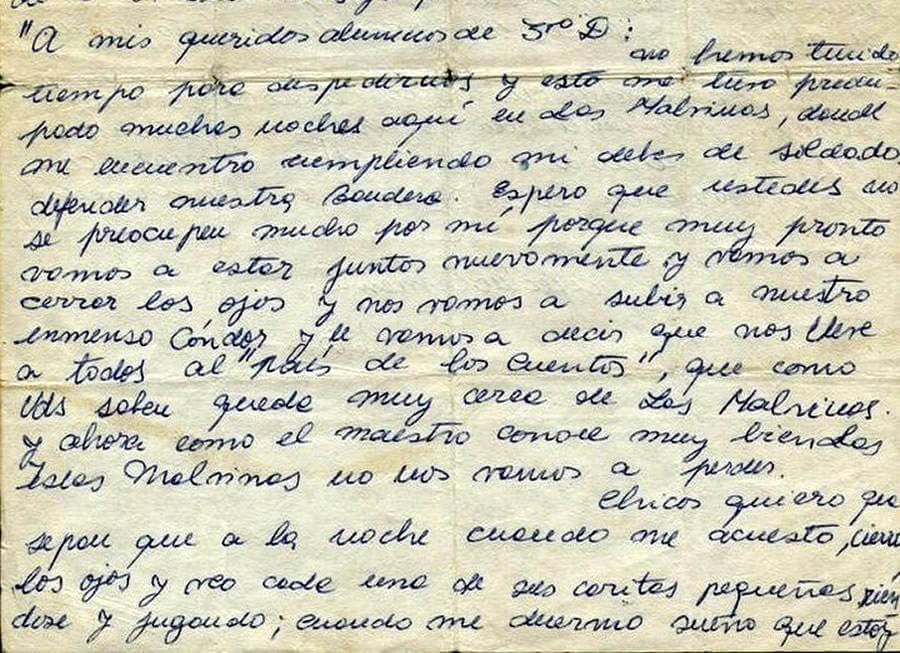 "A mis queridos alumnos de 3ro D:
no hemos tenido
tiempo para despedirnos y esto me tuvo preocu-
pado muchas noches aquí en Las Malvinas, donde
me encuentro cumpliendo mi deber de soldado,
defender nuestra Bandera. Espero que ustedes no
se preocupen mucho por mí porque muy pronto
vamos a estar juntos nuevamente y vamos a
cerrar los ojos y nos vamos a subir a nuestro
inmenso Cóndor y le vamos a decir que nos lleve
a todos al "País de los Cuentos", que como
Uds saben queda muy cerca de Las Malvinas.
Y ahora como el maestro conoce muy bien las
Islas Malvinas no nos vamos a perder.
Chicos quiero que
sepan que a la noche cuando me acuesto, cierro
los ojos y veo cada una de sus caritas pequeñas rien
dose y jugando; cuando me duermo sueño que estoy